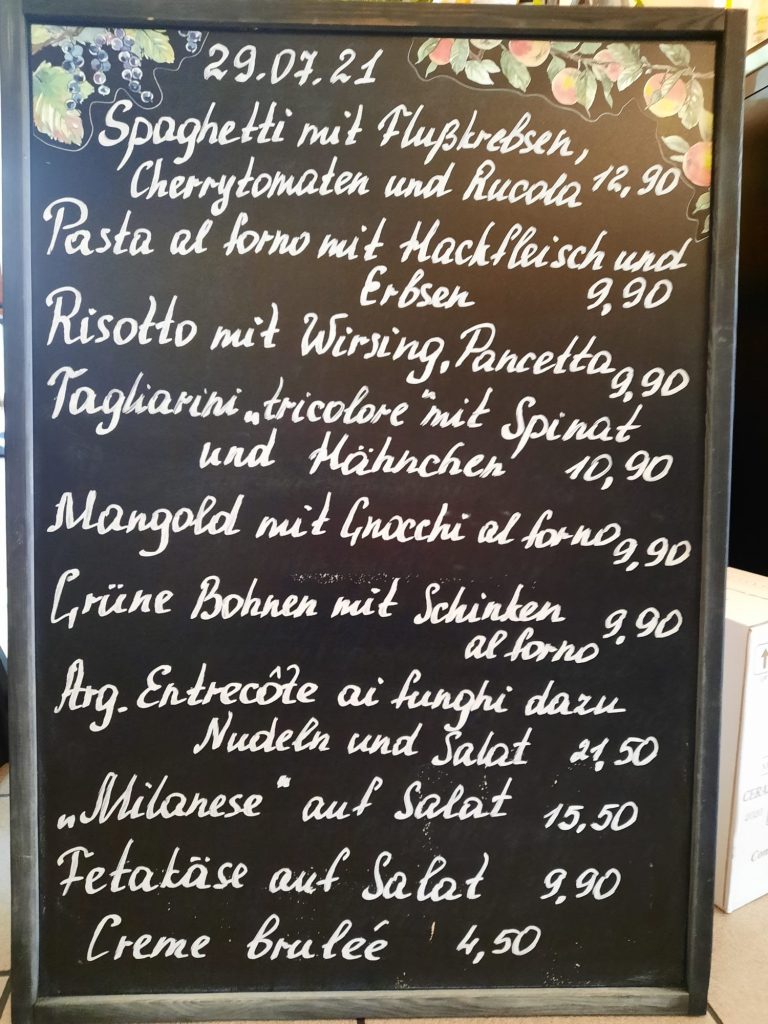 29.07.21
Spaghetti mit Flußkrebsen,
Cherrytomaten und Rucola 12,90
Pasta al forno mit Hackfleisch und
Erbsen 9,90
Risotto mit Wirsing, Pancetta 9,90
Tagliarini „tricolore" mit Spinat
und Hähnchen 10,90
Mangold mit Gnocchi al forno 9,90
Grüne Bohnen mit Schinken 9,90
al forno
Arg. Entrecôte ai funghi dazu
Nudeln und Salat 21,50
„Milanese" auf Salat 15,50
Fetakäse auf Salat 9,90
Creme bruleé 4,50